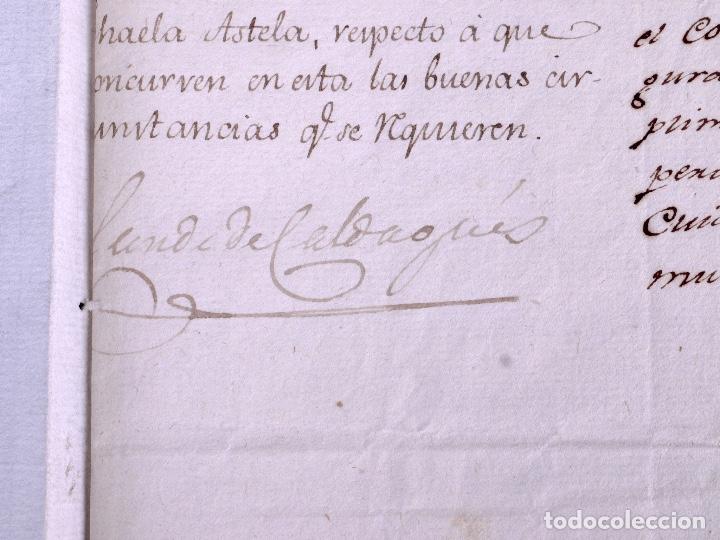 haela Astela, respecto à que
oncurren en esta las buenas cir-
unstancias q.e se requieren.
Conde de Caldagués
el Co
gura
prim
pera
Ciu
mu
todocoleccion.net